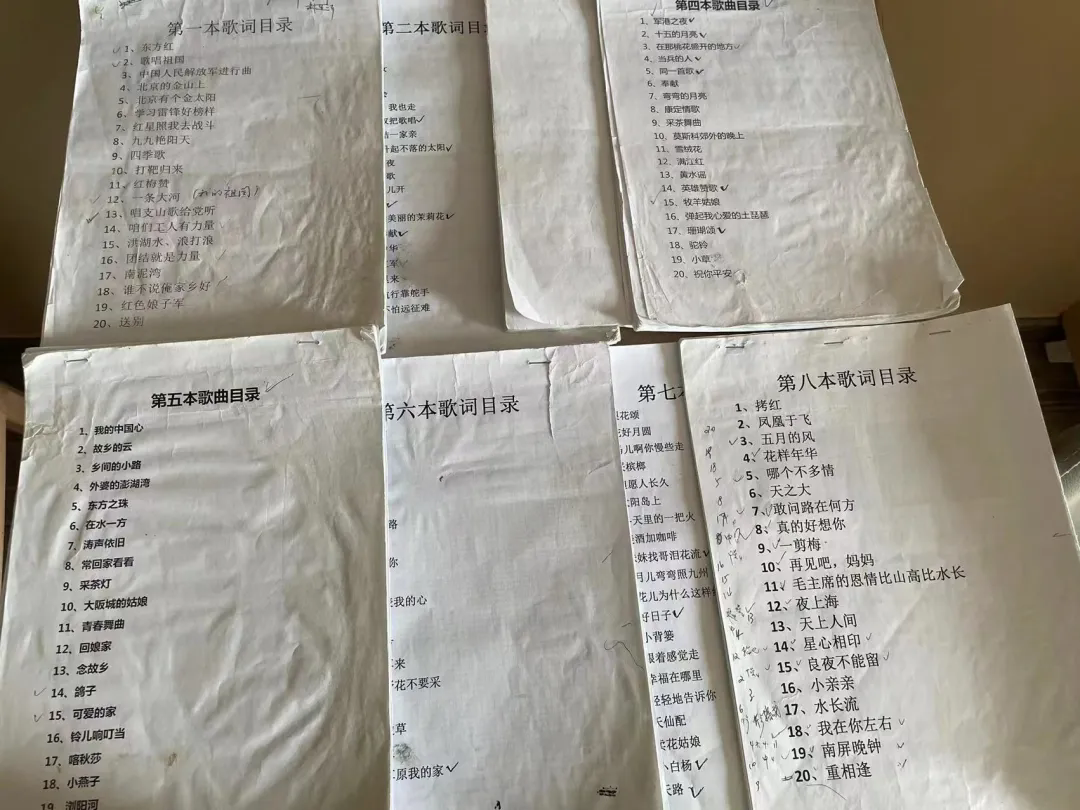 第一本歌词目录
1、东方红
2、歌唱祖国
3、中国人民解放军进行曲
4、北京的金山上
5、北京有个金太阳
6、学习雷锋好榜样
7、红星照我去战斗
8、九九艳阳天
9、四季歌
10、打靶归来
11、红梅赞
12、一条大河（我的祖国）
13、唱支山歌给党听
14、咱们工人有力量
15、洪湖水、浪打浪
16、团结就是力量
17、南泥湾
18、谁不说俺家乡好
19、红色娘子军
20、送别
第二本歌词目
我也走
把歌唱
一家亲
起不落的太阳
夜
歌
儿开
美丽的茉莉花
献
华
军
来
航行靠舵手
不怕远征难
第四本歌曲目录
1、军港之夜
2、十五的月亮
3、在那桃花盛开的地方
4、当兵的人
5、同一首歌
6、奉献
7、弯弯的月亮
8、康定情歌
9、采茶舞曲
10、莫斯科郊外的晚上
11、雪绒花
12、满江红
13、黄水谣
14、英雄赞歌
15、牧羊姑娘
16、弹起我心爱的土琵琶
17、珊瑚颂
18、驼铃
19、小草
20、祝你平安
第五本歌曲目录
1、我的中国心
2、故乡的云
3、乡间的小路
4、外婆的澎湖湾
5、东方之珠
6、在水一方
7、涛声依旧
8、常回家看看
9、采茶灯
10、大阪城的姑娘
11、青春舞曲
12、回娘家
13、念故乡
14、鸽子
15、可爱的家
16、铃儿响叮当
17、喀秋莎
18、小燕子
19、浏阳河
第六本歌词目录
路
你
我的心
来
花不要采
草
原我的家
第七
花颂
好月圆
儿啊你慢些走
槟榔
愿人长久
太阳岛上
天里的一把火
酒加咖啡
妹找哥泪花流
月儿弯弯照九州
花儿为什么这样
好日子
小背篓
跟着感觉走
幸福在哪里
轻轻地告诉你
天仙配
卖花姑娘
小白杨
天路
第八本歌词目录
1、拷红
2、凤凰于飞
3、五月的风
4、花样年华
5、哪个不多情
6、天之大
7、敢问路在何方
8、真的好想你
9、一剪梅
10、再见吧，妈妈
11、毛主席的恩情比山高比水长
12、夜上海
13、天上人间
14、星心相印
15、良夜不能留
16、小亲亲
17、水长流
18、我在你左右
19、南屏晚钟
20、重相逢